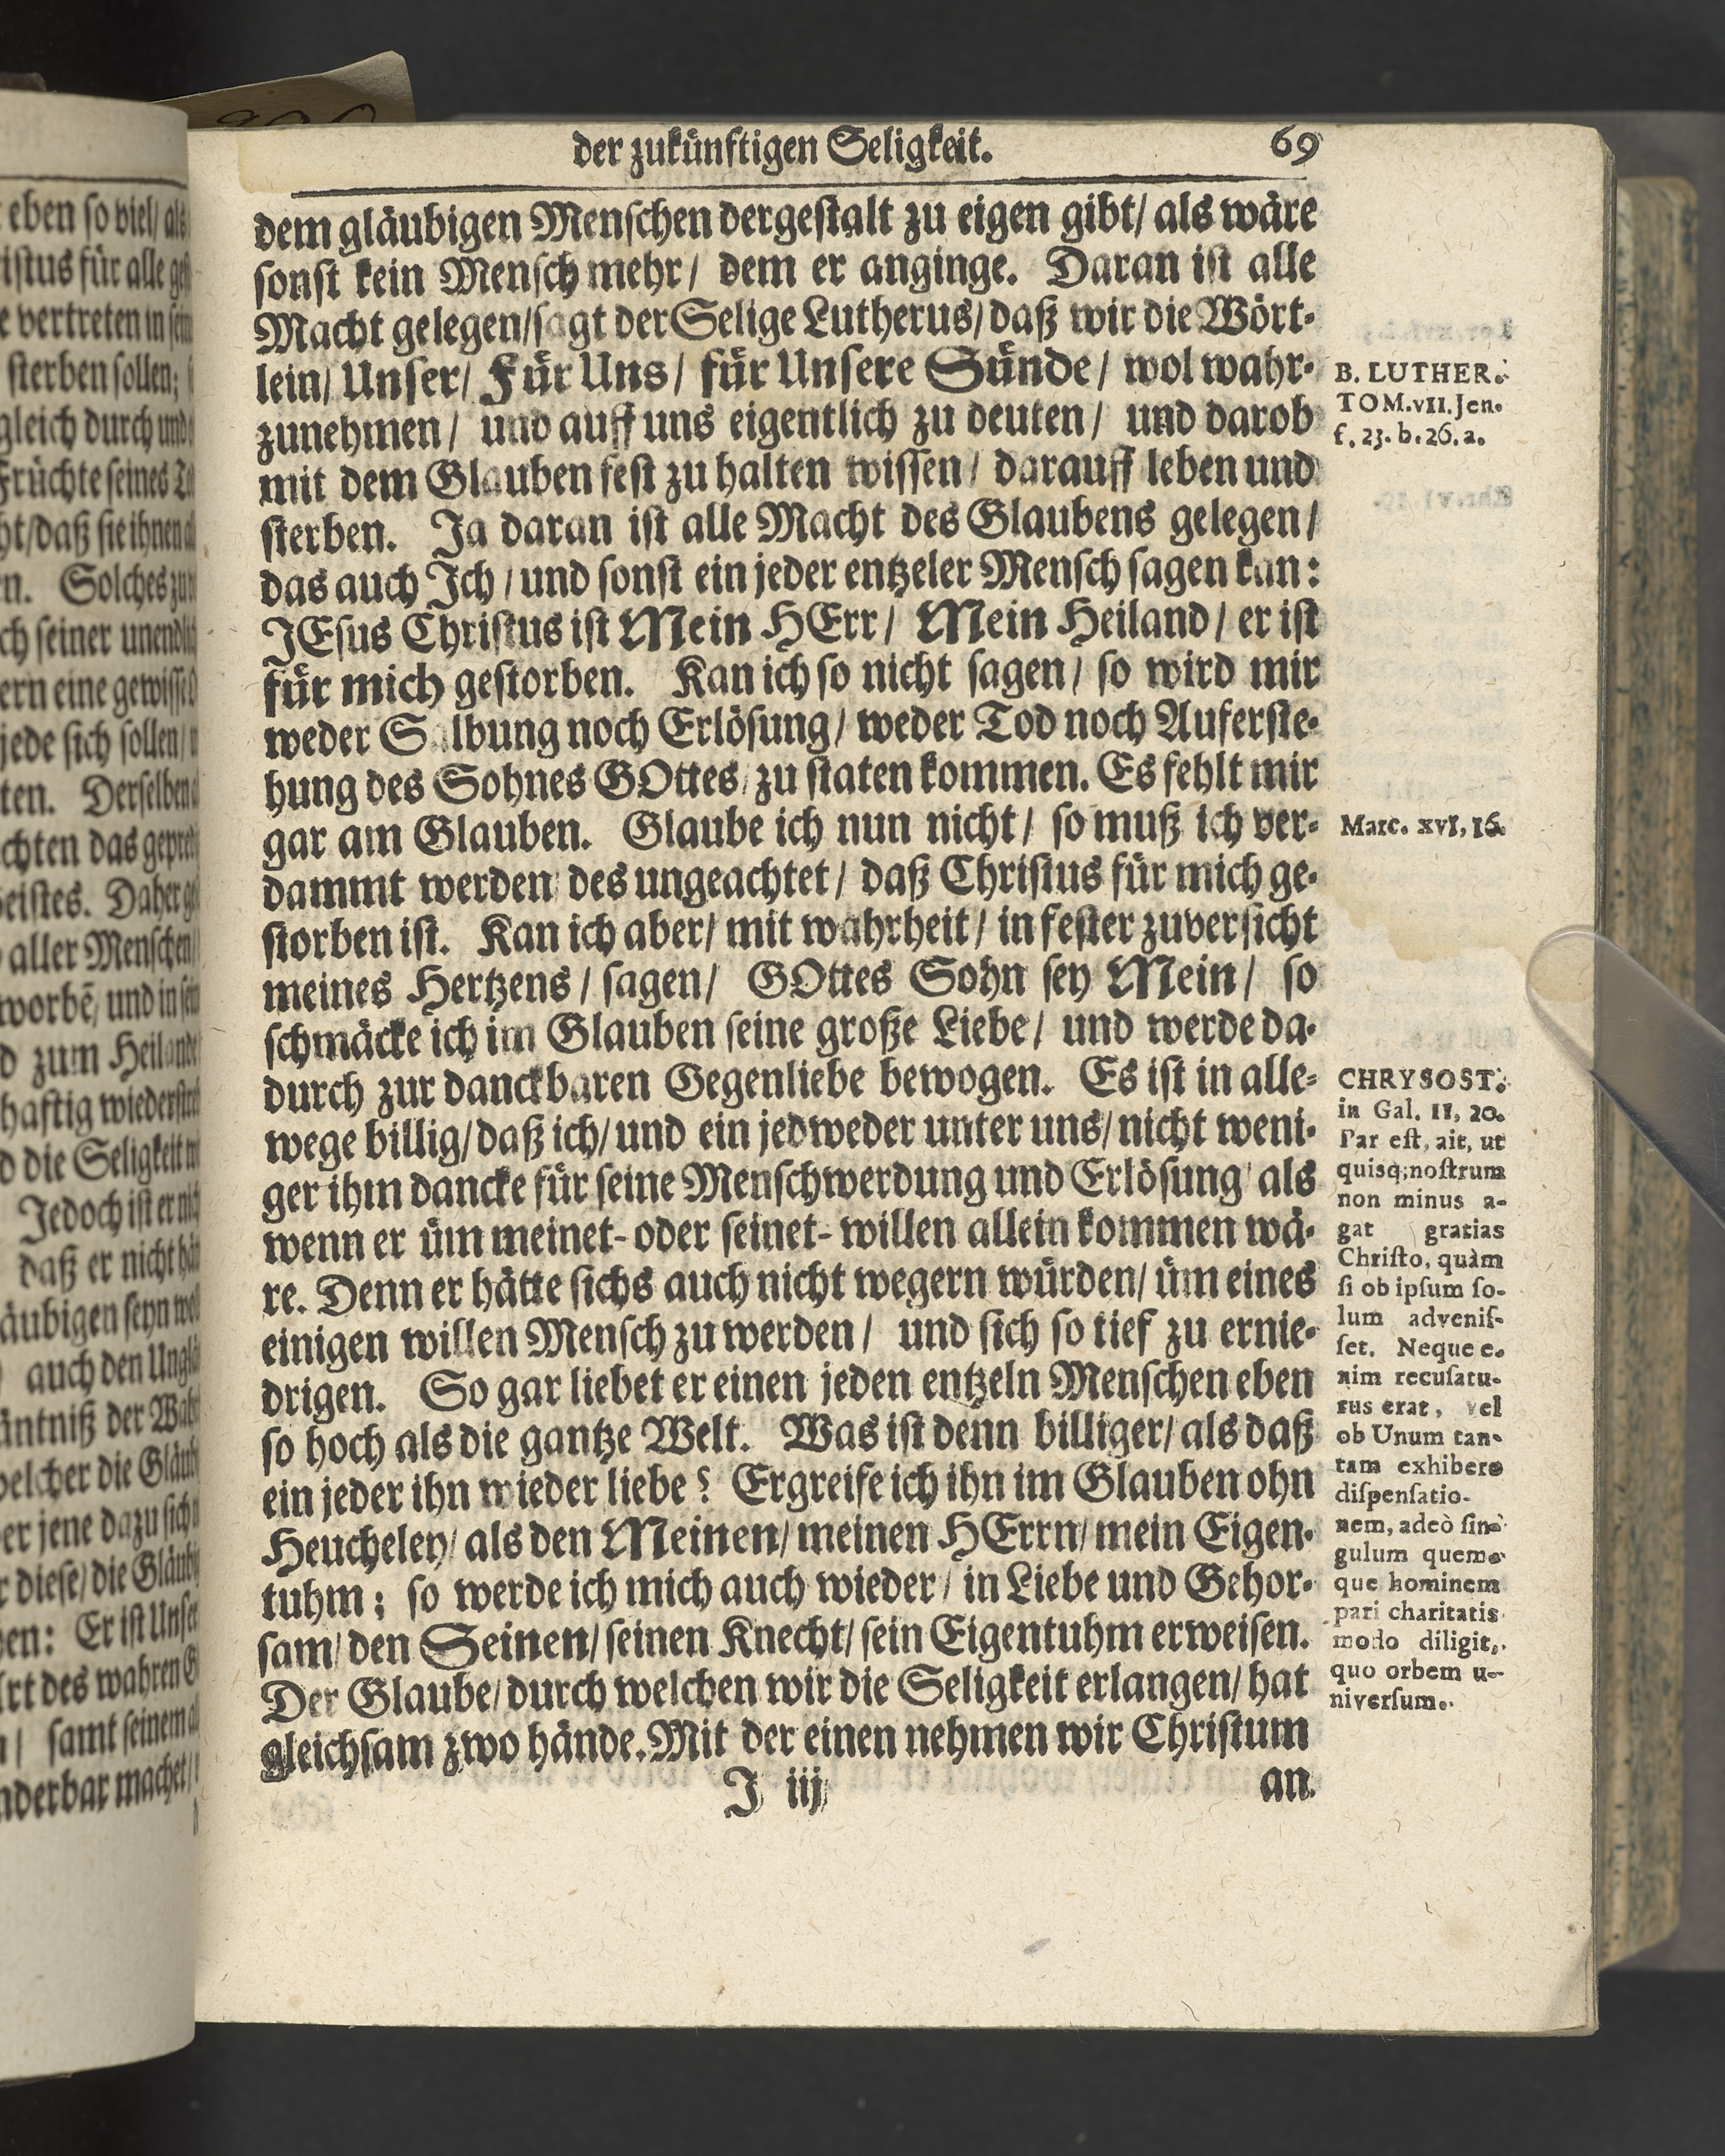 der zukünftigen Seligkeit. 69
dem gläubigen Menschen dergestalt zu eigen gibt/ als wäre
sonst kein Mensch mehr/ dem er anginge. Daran ist alle
Macht gelegen/sagt der Selige Lutherus/ daß wir die Wört-
lein/ Unser/ Für Uns/ für Unsere Sünde/ wol wahr-
zunehmen/ und auff uns eigentlich zu deuten/ und darob
mit dem Glauben fest zu halten wissen/ darauff leben und
sterben. Ja daran ist alle Macht des Glaubens gelegen/
das auch Ich/ und sonst ein jeder entzeler Mensch sagen kan:
JEsus Christus ist Mein HErr/ Mein Heiland/ er ist
für mich gestorben. Kan ich so nicht sagen/ so wird mir
weder Salbung noch Erlösung/ weder Tod noch Auferste-
hung des Sohnes GOttes/ zu staten kommen. Es fehlt mir
gar am Glauben. Glaube ich nun nicht/ so muß ich ver-
dammt werden/ des ungeachtet/ daß Christus für mich ge-
storben ist. Kan ich aber/ mit wahrheit/ in fester zuversicht
meines Hertzens/ sagen/ GOttes Sohn sey Mein/ so
schmäcke ich im Glauben seine große Liebe/ und werde da-
durch zur danckbaren Gegenliebe bewogen. Es ist in alle-
wege billig/ daß ich/ und ein jedweder unter uns/ nicht weni-
ger ihm dancke für seine Menschwerdung und Erlösung/ als
wenn er üm meinet- oder seinet- willen allein kommen wä-
re. Denn er hätte sichs auch nicht wegern würden/ üm eines
einigen willen Mensch zu werden/ und sich so tief zu ernie-
drigen. So gar liebet er einen jeden entzeln Menschen eben
so hoch als die gantze Welt. Was ist denn billiger/ als daß
ein jeder ihn wieder liebe? Ergreife ich ihn im Glauben ohn
Heucheley/ als den Meinen/ meinen HErrn/ mein Eigen-
tuhm; so werde ich mich auch wieder/ in Liebe und Gehor-
sam/ den Seinen/ seinen Knecht/ sein Eigentuhm erweisen.
Der Glaube/ durch welchen wir die Seligkeit erlangen/ hat
gleichsam zwo hände. Mit der einen nehmen wir Christum
J iij an.
B. LUTHER.
TOM. vII. Jen.
f. 23. b. 26. a.
Marc. xvI, 16.
CHRYSOST.
in Gal. II, 20.
Par est, ait, ut
quisq; nostrum
non minus a-
gat gratias
Christo, quàm
si ob ipsum so-
lum advenis-
set. Neque e-
nim recusatu-
rus erat, vel
ob Unum tan-
tam exhibere
dispensatio-
nem, adeò sin-
gulum quem-
que hominem
pari charitatis
modo diligit,
quo orbem u-
niversum.
eben so viel/ als
für alle
vertreten in
sterben sollen;
gleich durch
Früchte seines
daß sie ihnen
Solches
seiner
eine
jede sich sollen/
Derselben
das
Daher
aller Menschen
und in
zum Heiland
haftig
die Seligkeit
Jedoch ist er
daß er nicht
seyn
auch den
der
welcher die
jene dazu
diese/ die
Er ist
des wahren
samt seinem
machet/